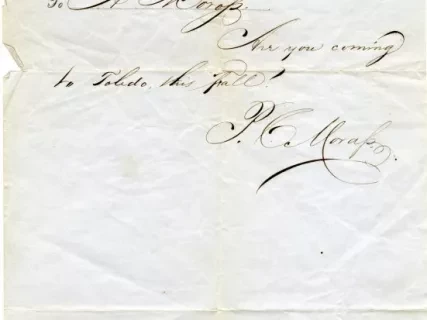 To A. Morass.
Are you coming
to Toledo, this fall?
P. C. Morass.